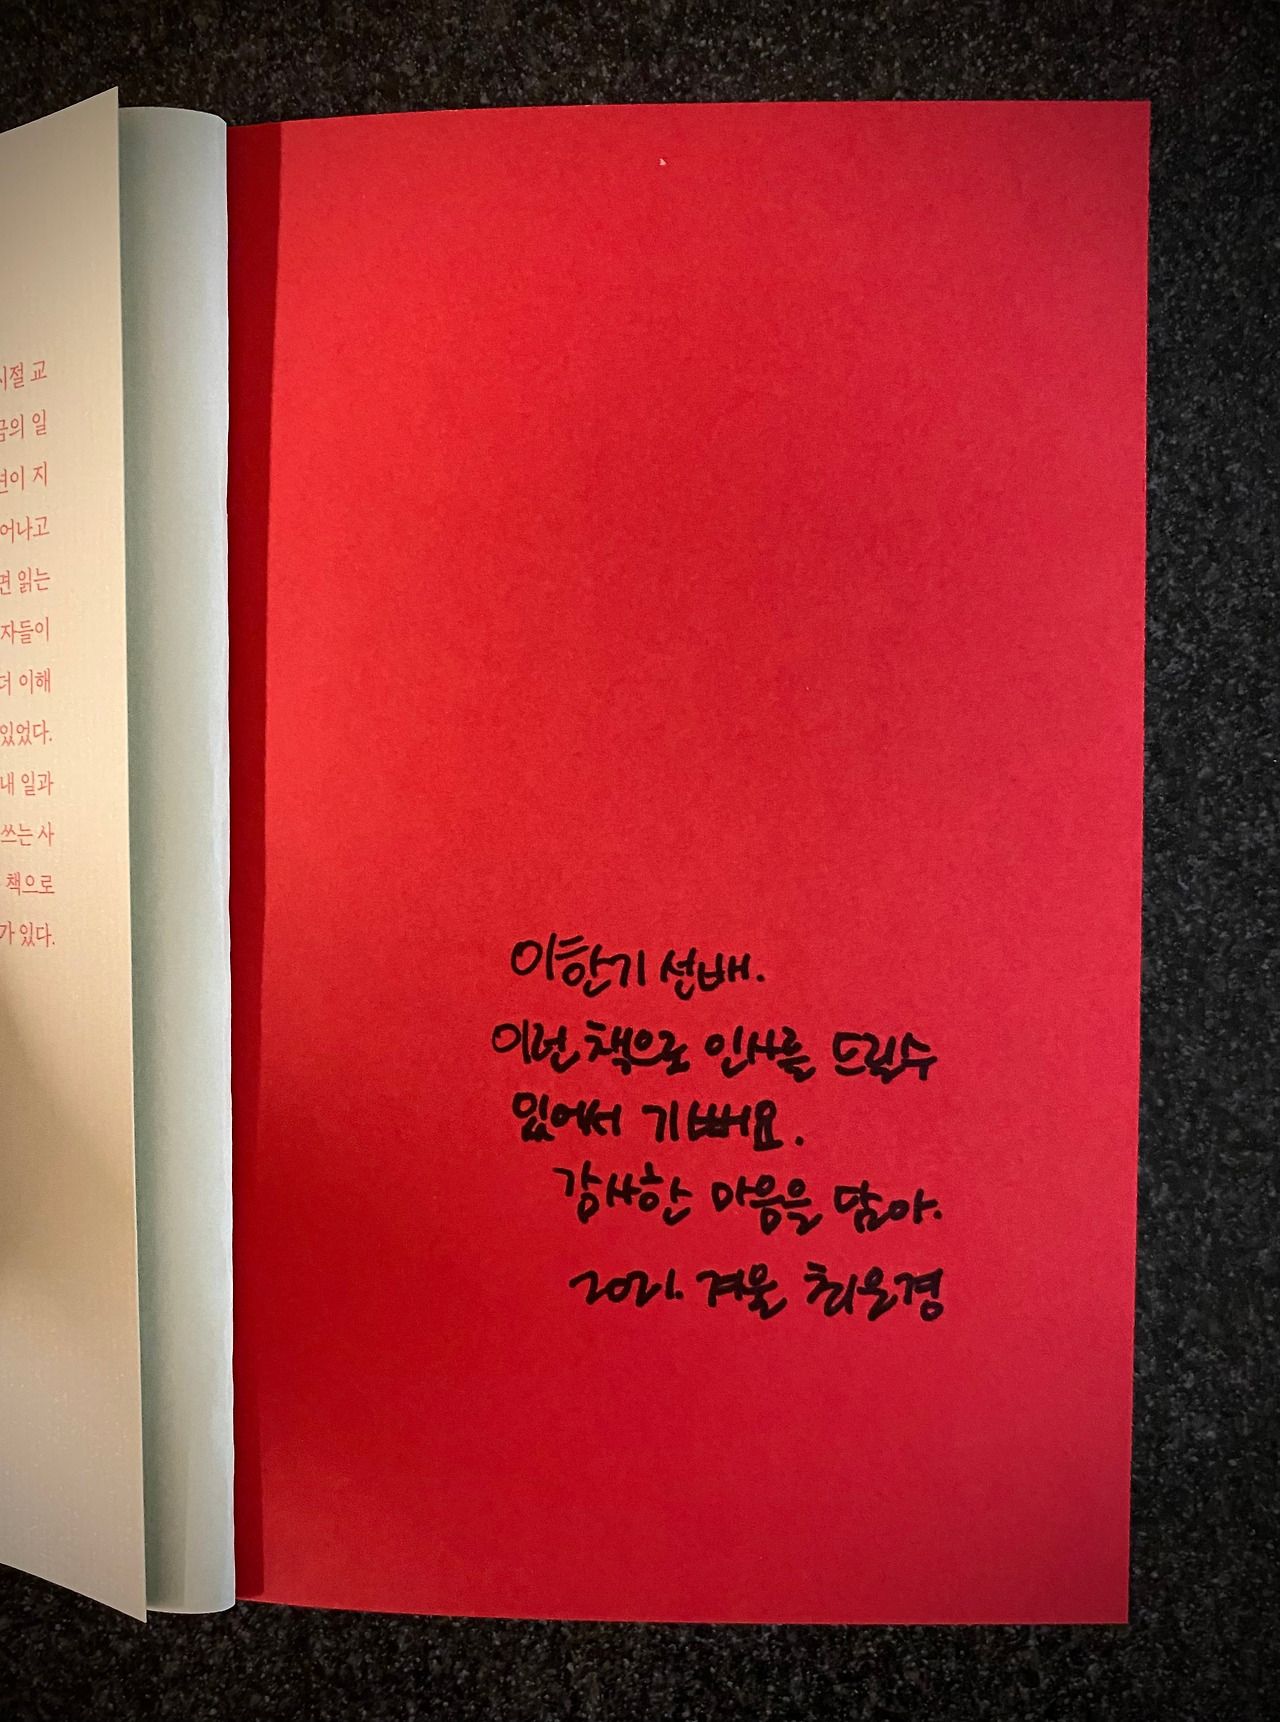 시절 교
금의 일
이 지
어나고
면 읽는
자들이
더 이해
있었다.
내 일과
쓰는 사
책으로
가 있다.
이한기 선배.
이런 책으로 인사를 드릴수
있어서 기뻐요.
감사한 마음을 담아.
2021. 겨울 최은경